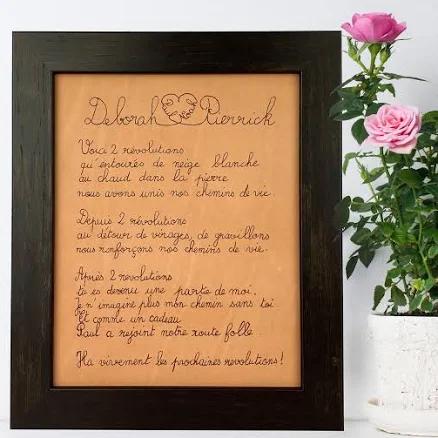 Deborah & Noah Pierrick
Voici 2 révolutions
qu'entourés de neige blanche
au chaud dans la pierre
nous avons unis nos chemins de vie.
Depuis 2 révolutions
au détour de virages, de gravillons
nous renforçons nos chemins de vie.
Après 2 revolutions
tu es devenu une partie de moi.
Je n'imagine plus mon chemin sans toi
Et comme un cadeau
Paul a rejoint notre route folle.
Ha vivement les prochaines revolutions!